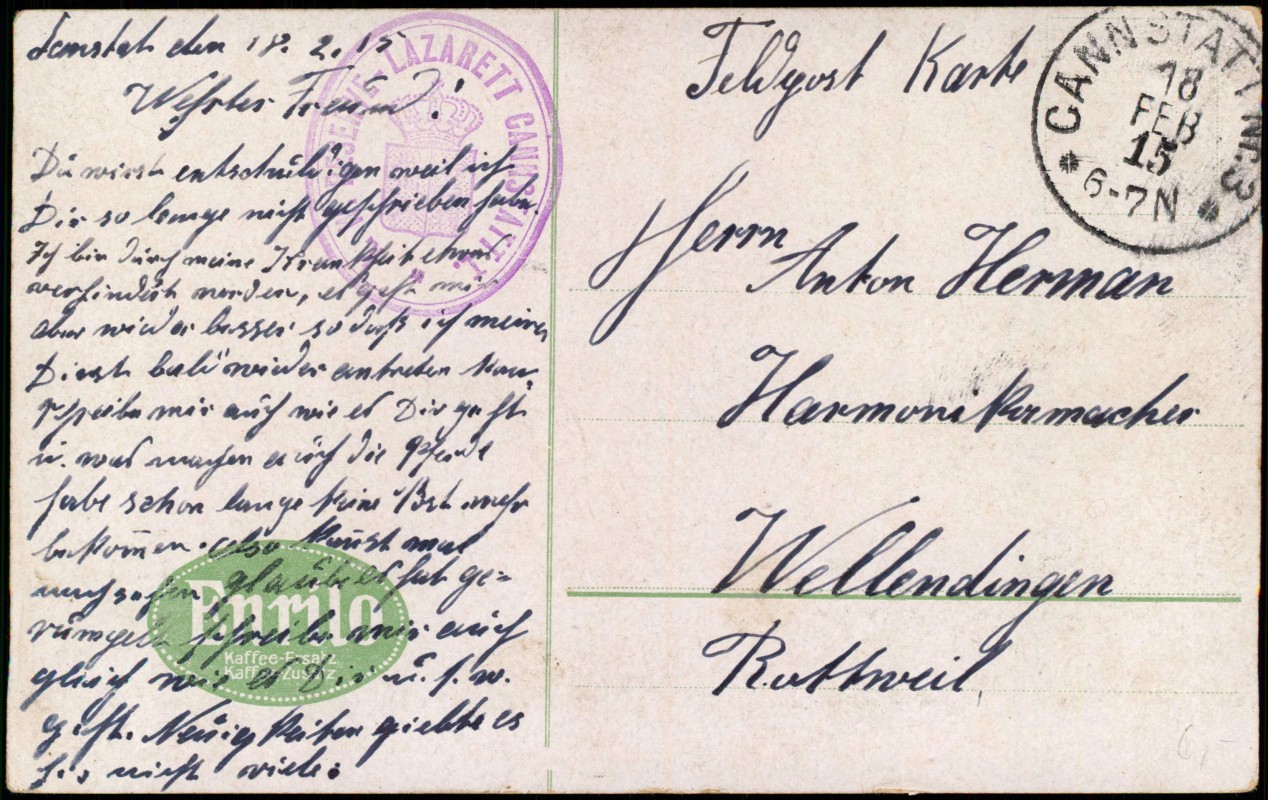 den 18. 2. 15
Wehrter Freund!
Du wirst entschuldigen weil ich
Dir so lange nicht geschrieben habe.
Ich bin durch meine Krankheit etwas
verhindert worden, es geht mir
aber wieder besser so daß ich meinen
Dienst bald wieder antreten kan
schreibe mir auch wie es Dir geht
u. was machen auch die Pferde
habe schon lange keine Post mehr
bekommen. also kanst mal
nachsehen glaube es hat ge=
schreibe mir auch
gleich wie es Dir u. s. w.
geht. Neuigkeiten giebts es
hir nicht viele.
RESERVE-LAZARETT CANNSTATT I.
Enrilo
Kaffee-Ersatz
Kaffee-Zusatz
Feldpost Karte
CANNSTATT Nr. 3
18
FEB
15
6-7N
Herrn
Anton Herman
Harmonikamacher
Wellendingen
Rottweil